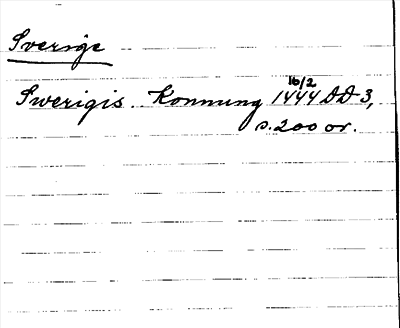 Sverige
Swerigis Konnung 16/2 1444 DD 3,
s. 200 or.